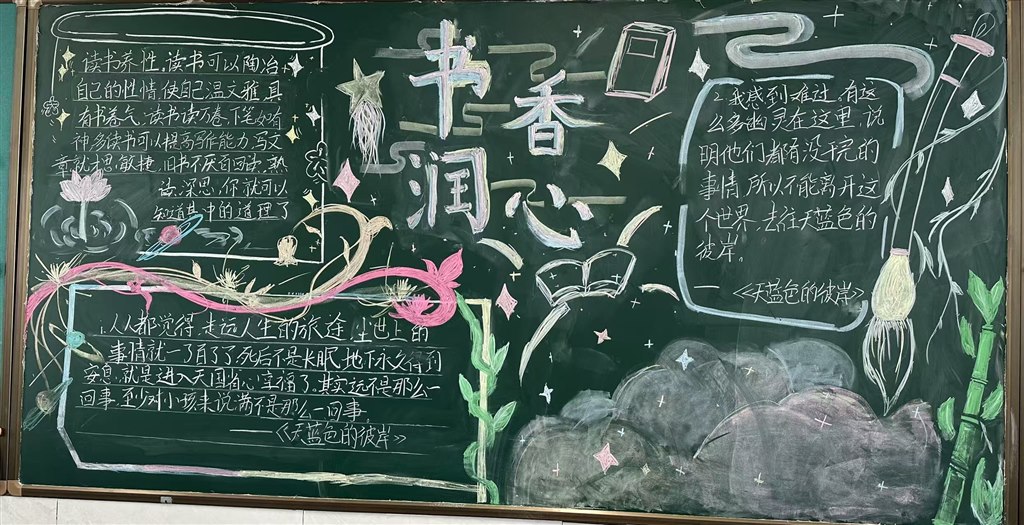 书香
润心
读书养性,读书可以陶冶
自己的性情,使自己温文雅,具
有书卷气,读书读万卷,下笔如有
神,多读书可以提高写作能力,写文
章就才思敏捷,旧书不厌百回读,熟
读深思,你就可以
知道其中的道理了
1.人人都觉得,走远人生的旅途,尘世上的
事情就一了百了了,死后不是长眠地下永久得到
安息,就是进入天国省心享福了,其实远不是那么一
回事,至少对小孩来说满不是那么一回事
——《天蓝色的彼岸》
2.我感到难过,有这
么多幽灵在这里,说
明他们都有没干完的
事情,所以不能离开这
个世界,去往天蓝色的
彼岸。
——《天蓝色的彼岸》